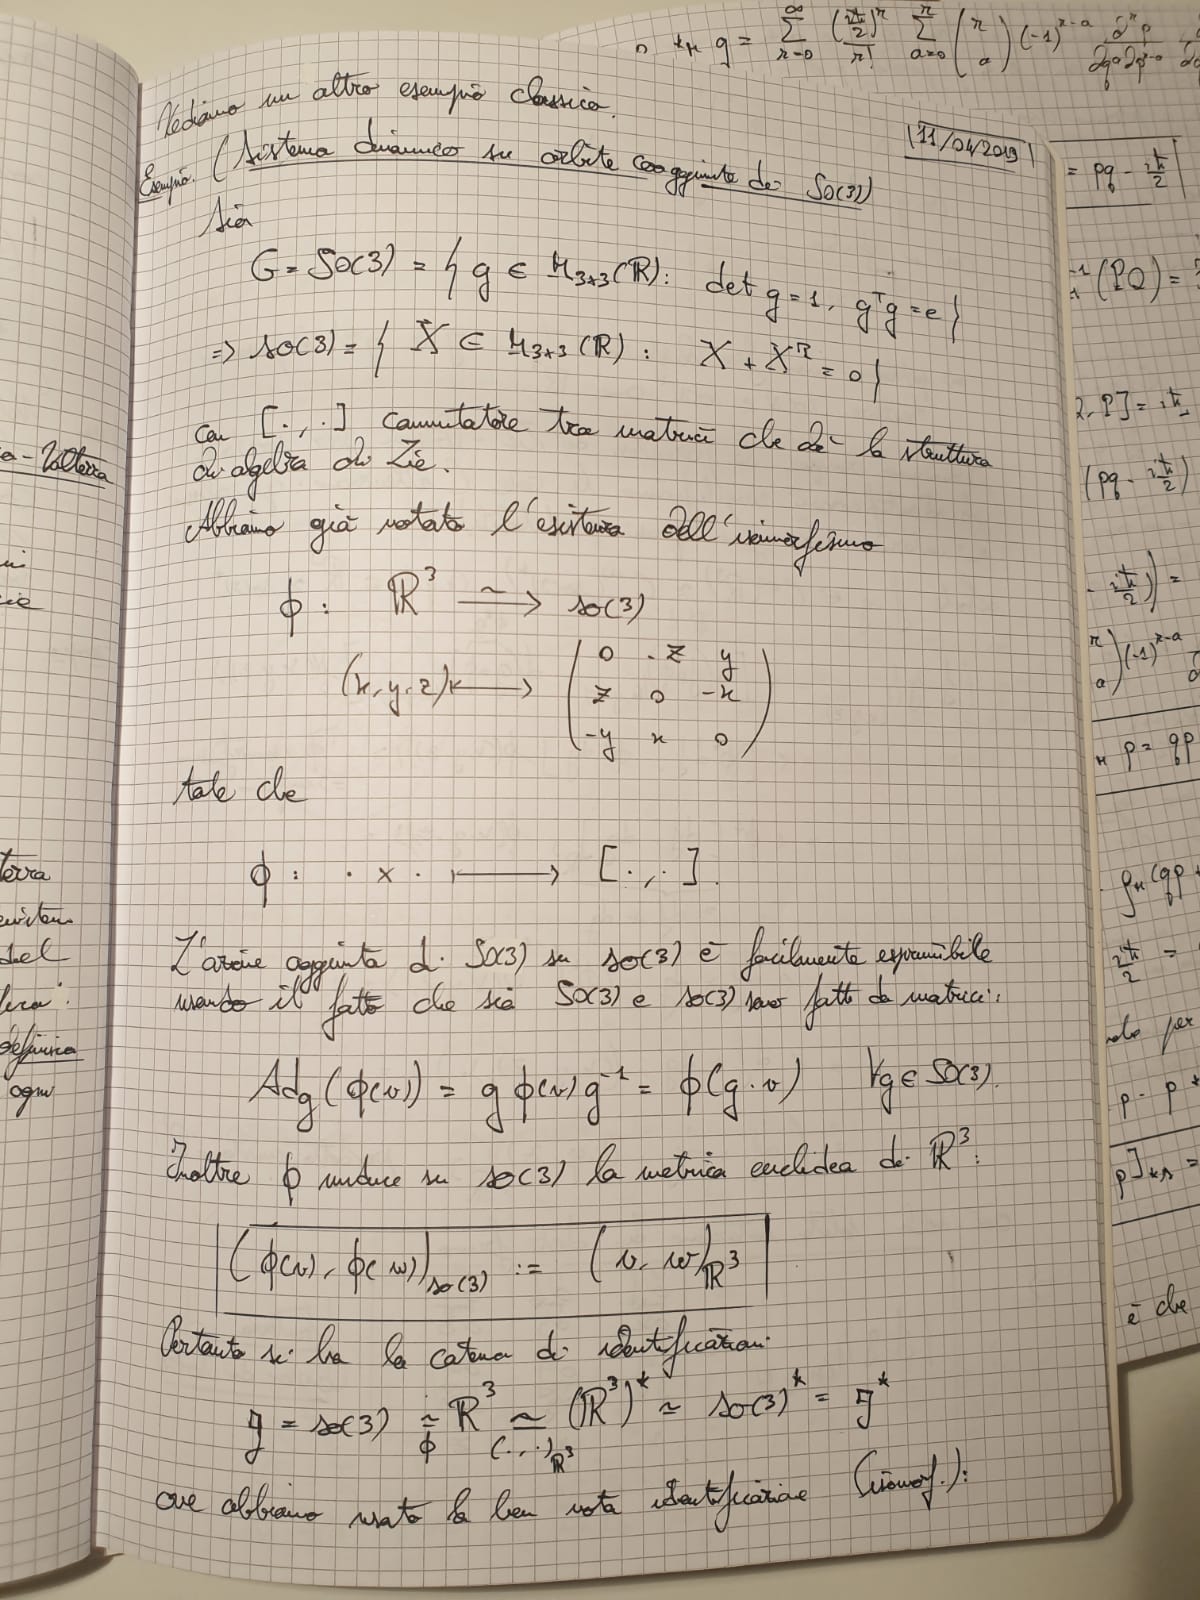 Vediamo un altro esempio classico.
|11/04/2019|
Esempio. (Sistema dinamico su orbite coaggiunte di SO(3))
Sia
G = SO(3) = { g ∈ M₃ₓ₃(ℝ) : det g = 1, gᵀg = e }
=> so(3) = { X ∈ M₃ₓ₃(ℝ) : X + Xᵀ = 0 }
con [·,·] commutatore tra matrici che dà la struttura
di algebra di Lie.
Abbiamo già notato l'esistenza dell'isomorfismo
ϕ : ℝ³ ⥲ so(3)
(x, y, z) ⟼ ( 0 -z y
z 0 -x
-y x 0 )
tale che
ϕ : · × · ⟼ [·,·].
L'azione aggiunta di SO(3) su so(3) è facilmente esprimibile
usando il fatto che sia SO(3) e so(3) sono fatti da matrici:
Ad_g(ϕ(v)) = g ϕ(v) g⁻¹ = ϕ(g·v) ∀g ∈ SO(3).
Inoltre ϕ induce su so(3) la metrica euclidea di ℝ³:
(ϕ(v), ϕ(w))_so(3) := (v, w)_ℝ³
Pertanto si ha la catena di identificazioni
𝔤 = so(3) ≃_ϕ ℝ³ ≃_(·,·)_ℝ³ (ℝ³)* ≃ so(3)* = 𝔤*
ove abbiamo usato la ben nota identificazione (isomorf.):
a-Volterra
terra
del
definisce
ogni
g = ∑_{r=0}^∞ (iħ/2)^r / r! ∑_{a=0}^r (r a) (-1)^{r-a}
= pq - iħ/2
(PQ) =
, P] = iħ
(pq - iħ/2)
- iħ/2) =
(-1)^{r-a}
p = qp
iħ/2 =
per
p - p *
è che